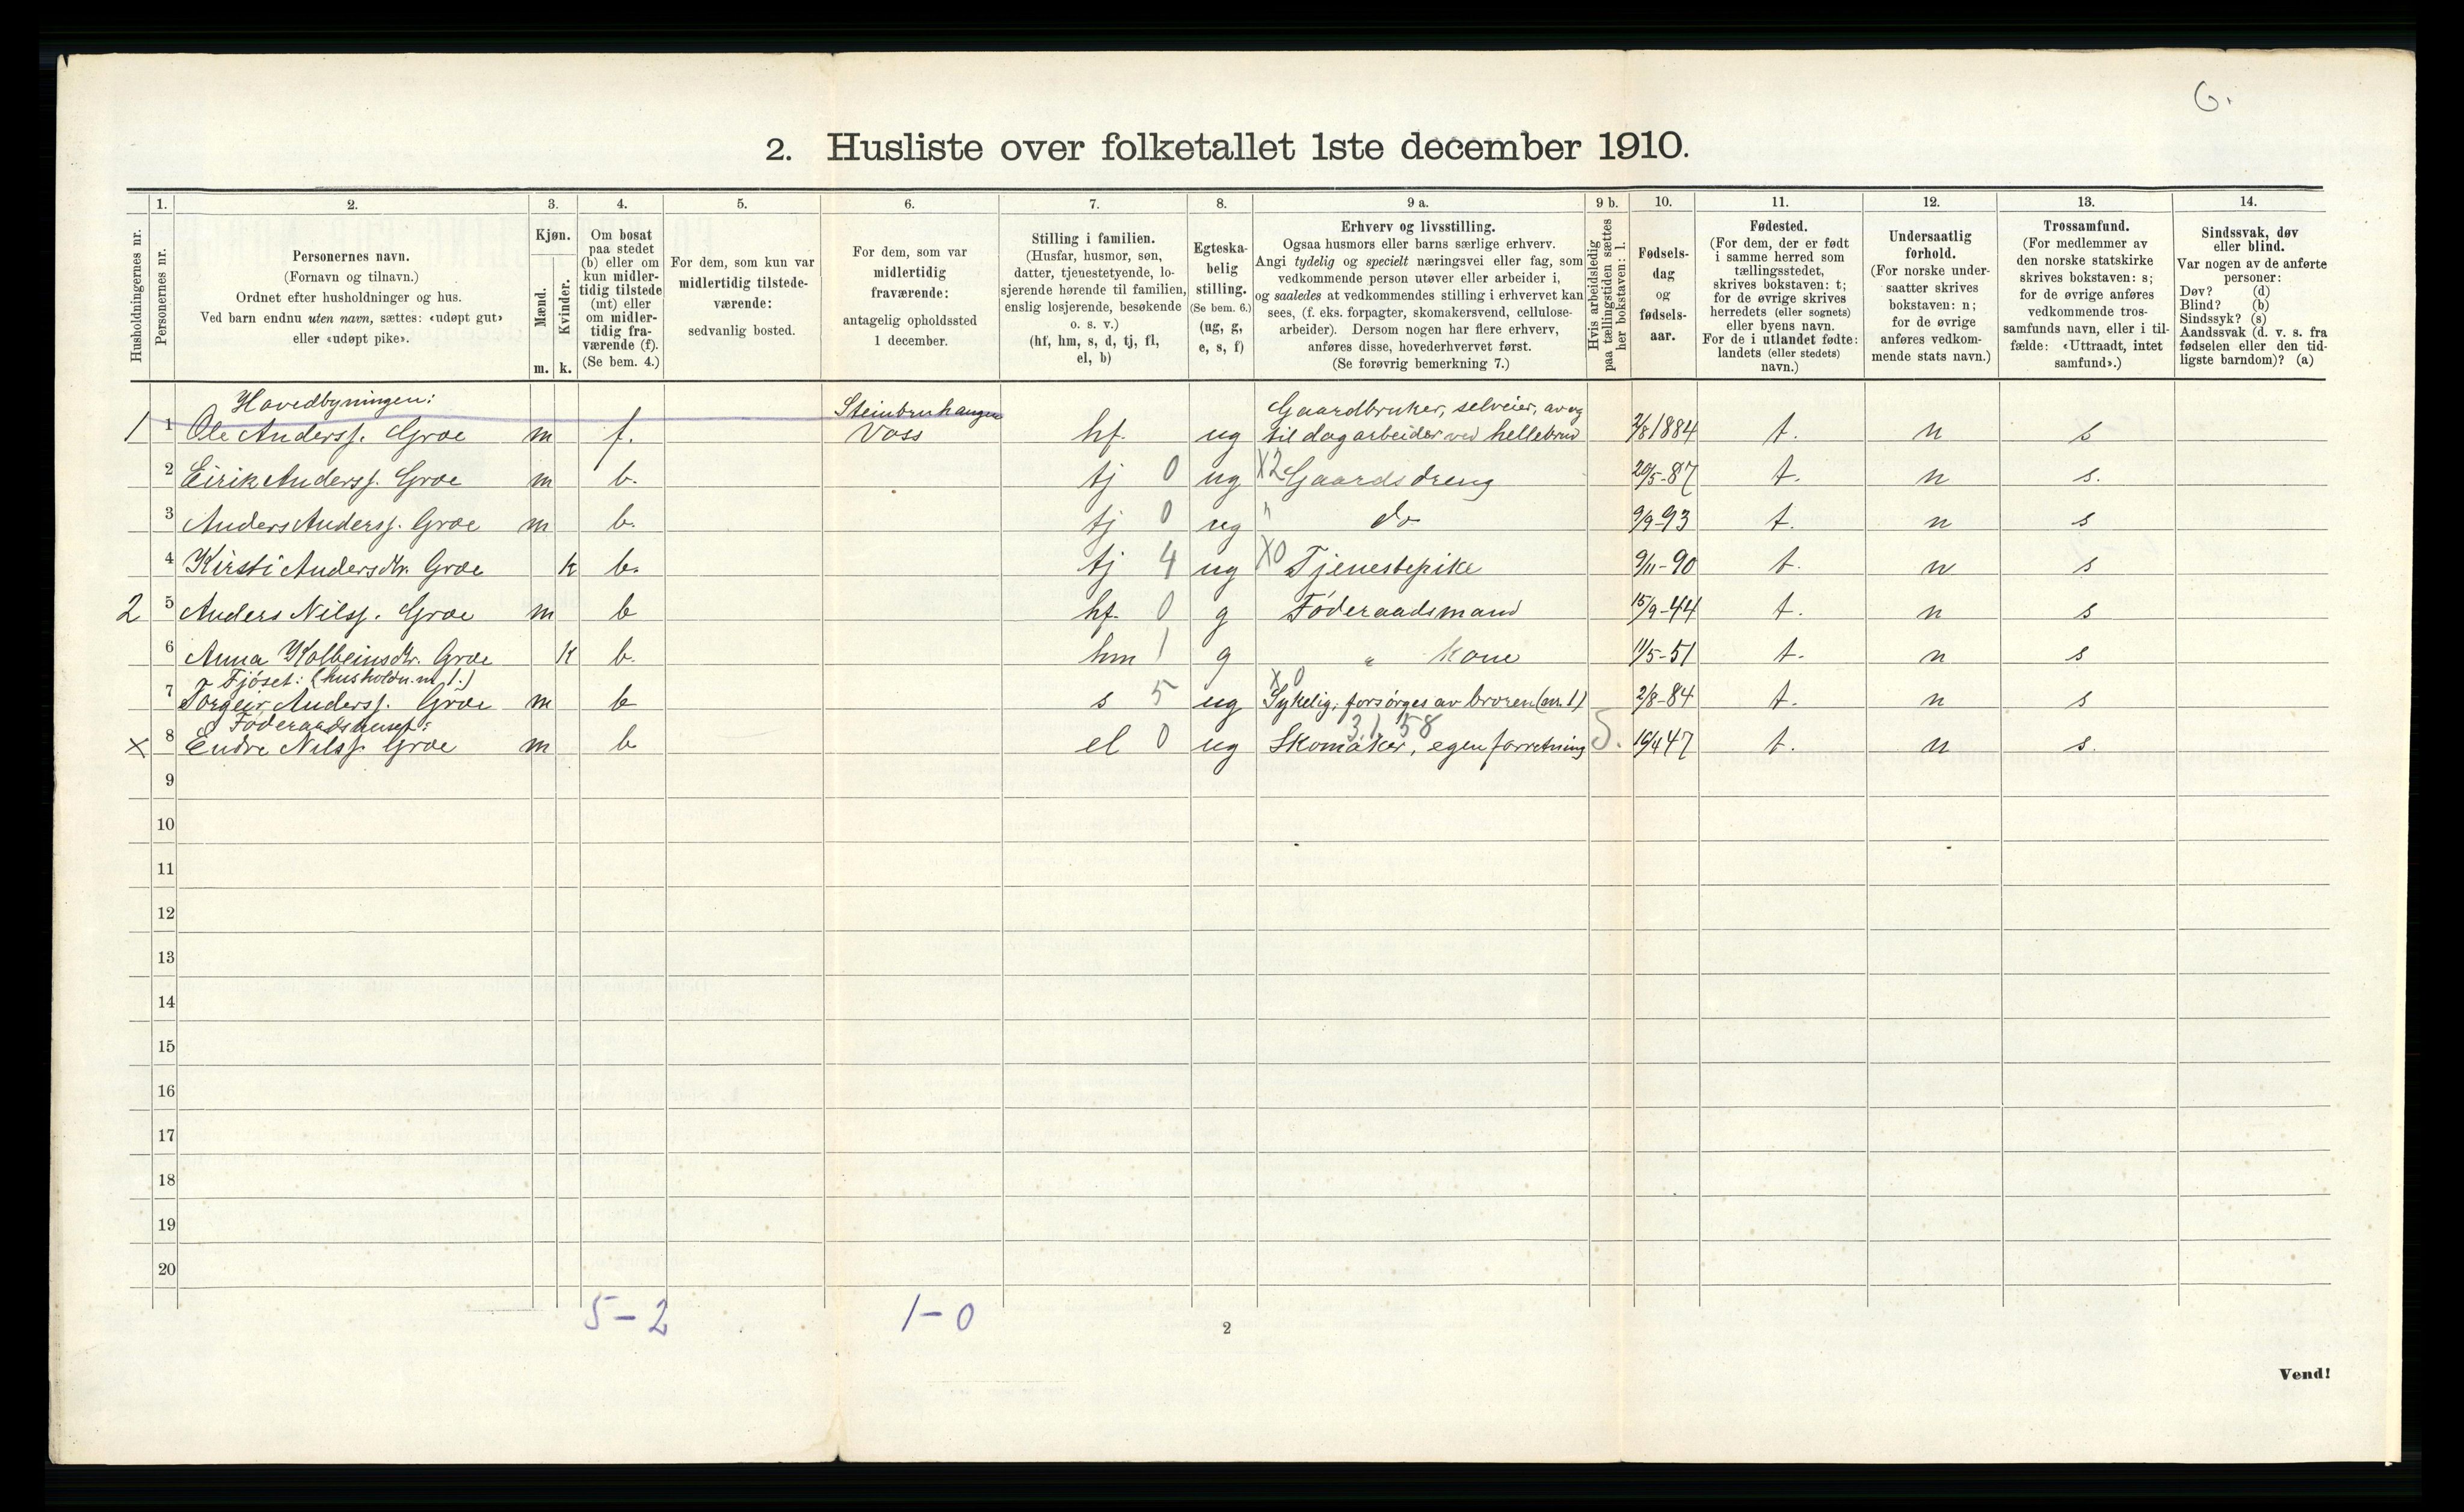 6.
2. Husliste over folketallet 1ste december 1910.
Husholdningernes nr.
1.
Personernes nr.
2.
Personernes navn.
(Fornavn og tilnavn.)
Ordnet efter husholdninger og hus.
Ved barn endnu uten navn, sættes: «udøpt gut»
eller «udøpt pike».
3.
Kjøn.
Mænd.
Kvinder.
m. k.
4.
Om bosat
paa stedet
(b) eller om
kun midler-
tidig tilstede
(mt) eller
om midler-
tidig fra-
værende (f).
(Se bem. 4.)
5.
For dem, som kun var
midlertidig tilstede-
værende:
sedvanlig bosted.
6.
For dem, som var
midlertidig
fraværende:
antagelig opholdssted
1 december.
7.
Stilling i familien.
(Husfar, husmor, søn,
datter, tjenestetyende, lo-
sjerende hørende til familien,
enslig losjerende, besøkende
o. s. v.)
(hf, hm, s, d, tj, fl,
el, b)
8.
Egteska-
belig
stilling.
(Se bem. 6.)
(ug, g,
e, s, f)
9 a.
Erhverv og livsstilling.
Ogsaa husmors eller barns særlige erhverv.
Angi tydelig og specielt næringsvei eller fag, som
vedkommende person utøver eller arbeider i,
og saaledes at vedkommendes stilling i erhvervet kan
sees, (f. eks. forpagter, skomakersvend, cellulose-
arbeider). Dersom nogen har flere erhverv,
anføres disse, hovederhvervet først.
(Se forøvrig bemerkning 7.)
9 b.
Hvis arbeidsledig
paa tællingstiden sættes
her bokstaven: l.
10.
Fødsels-
dag
og
fødsels-
aar.
11.
Fødested.
(For dem, der er født
i samme herred som
tællingsstedet,
skrives bokstaven: t;
for de øvrige skrives
herredets (eller sognets)
eller byens navn.
For de i utlandet fødte:
landets (eller stedets)
navn.)
12.
Undersaatlig
forhold.
(For norske under-
saatter skrives
bokstaven: n;
for de øvrige
anføres vedkom-
mende stats navn.)
13.
Trossamfund.
(For medlemmer av
den norske statskirke
skrives bokstaven: s;
for de øvrige anføres
vedkommende tros-
samfunds navn, eller i til-
fælde: «Uttraadt, intet
samfund».)
14.
Sindssvak, døv
eller blind.
Var nogen av de anførte
personer:
Døv? (d)
Blind? (b)
Sindssyk? (s)
Aandssvak (d. v. s. fra
fødselen eller den tid-
ligste barndom)? (a)
Hovedbyningen: Gaardbruker, selveier, av og
1 1 Ole Anderss. Groe m f. Voss hf. ug til dagarbeider ved hellebrud 2/8 1884 t. n s
2 Eirik Anderss. Groe m b. tj 0 ug X2 Gaardsdreng 20/5-87 t. n s.
3 Anders Anderss. Groe m b. tj 0 ug " do 9/9-93 t. n s
4 Kirsti Andersdtr. Groe k b. tj 4 ug X0 Tjenestepike 9/11-90 t. n s
2 5 Anders Nilss. Groe m b hf. 0 g Føderaadsmand 15/9-44 t. n s
6 Anna Kolbeinsdtr. Groe k b. hm 1 g " kone 11/5-51 t. n s
Fjöset: (husholdn. nr. 1.) X0
7 Torgeir Anderss. Groe m b s 5 ug Sykelig, forsørges av broren (nr. 1) 2/8-84 t. n s
Føderaadshuset: 31 58
x 8 Endre Nilss. Groe m b el 0 ug Skomaker, egen forretning 5. 16/4 47 t. n s.
9
10
11
12
13
14
15
16
17
18
19
20
5-2 1-0
2
Vend!